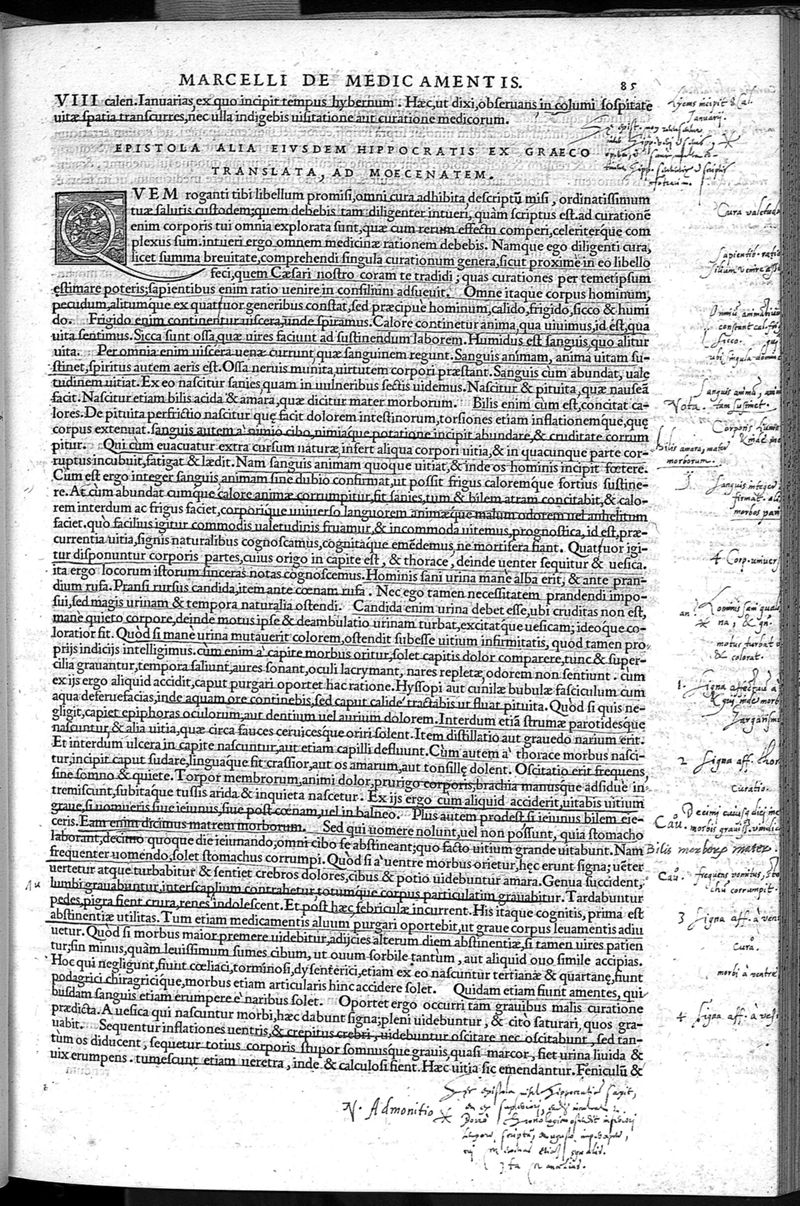 MARCELLI DE MEDICAMENTIS. 85
VIII calen. Ianuarias, ex quo incipit tempus hybernum. Hæc, ut dixi, obseruans in columi sospitate
uitæ spatia transcurres, nec ulla indigebis uisitatione aut curatione medicorum.
EPISTOLA ALIA EIVSDEM HIPPOCRATIS EX GRAECO
TRANSLATA, AD MOECENATEM.
QVEM roganti tibi libellum promisi, omni cura adhibita descriptũ misi, ordinatissimum
tuæ salutis custodem; quem debebis tam diligenter intueri, quàm scriptus est. ad curationẽ
enim corporis tui omnia explorata sunt, quæ cum rerum effectu comperi, celeriterque com
plexus sum. intueri ergo omnem medicinæ rationem debebis. Namque ego diligenti cura,
licet summa breuitate, comprehendi singula curationum genera, sicut proximè in eo libello
feci, quem Cæsari nostro coram te tradidi; quas curationes per temetipsum
estimare poteris; sapientibus enim ratio uenire in consilium adsueuit. Omne itaque corpus hominum,
pecudum, alitumque ex quattuor generibus constat, sed præcipuè hominum, calido, frigido, sicco & humi
do. Frigido enim continentur uiscera, unde spiramus. Calore continetur anima, qua uiuimus, id est, qua
uita sentimus. Sicca sunt ossa, quæ uires faciunt ad sustinendum laborem. Humidus est sanguis, quo alitur
uita. Per omnia enim uiscera uenæ currunt, quæ sanguinem regunt. Sanguis animam, anima uitam su-
stinet, spiritus autem aeris est. Ossa neruis munita, uirtutem corpori præstant. Sanguis cum abundat, uale
tudinem uitiat. Ex eo nascitur sanies, quam in uulneribus sectis uidemus. Nascitur & pituita, quæ nauseã
facit. Nascitur etiam bilis acida & amara, quæ dicitur mater morborum. Bilis enim cùm est, concitat ca-
lores. De pituita perfrictio nascitur quę facit dolorem intestinorum, torsiones etiam inflationemque, quę
corpus extenuat. sanguis autem à nimio cibo, nimiaque potatione incipit abundare, & cruditate corrum
pitur. Qui cùm euacuatur extra cursum naturæ, infert aliqua corpori uitia, & in quacunque parte cor-
ruptus incubuit, fatigat & lædit. Nam sanguis animam quoque uitiat, & inde os hominis incipit fœtere.
Cùm est ergo integer sanguis, animam sine dubio confirmat, ut possit frigus caloremque fortius sustine-
re. At cùm abundat cumque calore animæ corrumpitur, fit sanies, tum & bilem atram concitabit, & calo-
rem interdum ac frigus faciet, corporique uniuerso languorem animæque malum odorem uel anhelitum
faciet. quo facilius igitur commodis ualetudinis fruamur, & incommoda uitemus, prognostica, id est, præ-
currentia uitia, signis naturalibus cognoscamus, cognitaque emẽdemus, ne mortifera fiant. Quattuor igi-
tur disponuntur corporis partes, cuius origo in capite est, & thorace, deinde uenter sequitur & uesica.
ita ergo locorum istorum sinceras notas cognoscemus. Hominis sani urina manè alba erit, & ante pran-
dium rufa. Pransi rursus candida, item ante cœnam rufa. Nec ego tamen necessitatem prandendi impo-
sui, sed magis urinam & tempora naturalia ostendi. Candida enim urina debet esse, ubi cruditas non est,
manè quieto corpore, deinde motus ipse & deambulatio urinam turbat, excitatque uesicam; ideoque co-
loratior fit. Quòd si manè urina mutauerit colorem, ostendit subesse uitium infirmitatis, quod tamen pro-
prijs indicijs intelligimus. cum enim à capite morbus oritur, solet capitis dolor comparere, tunc & super-
cilia grauantur, tempora saliunt, aures sonant, oculi lacrymant, nares repletæ, odorem non sentiunt. cum
ex ijs ergo aliquid accidit, caput purgari oportet hac ratione. Hyssopi aut cunilæ bubulæ fasciculum cum
aqua deferuefacias, inde aquam ore continebis, sed caput calidè tractabis ut fluat pituita. Quòd si quis ne-
gligit, capiet epiphoras oculorum, aut dentium uel aurium dolorem. Interdum etiã strumæ parotidesque
nascuntur, & alia uitia, quæ circa fauces ceruicesque oriri solent. Item distillatio aut grauedo narium erit.
Et interdum ulcera in capite nascuntur, aut etiam capilli defluunt. Cùm autem à thorace morbus nasci-
tur, incipit caput sudare, linguaque sit crassior, aut os amarum, aut tonsillę dolent. Oscitatio erit frequens,
sine somno & quiete. Torpor membrorum, animi dolor, prurigo corporis, brachia manusque adsiduè in-
tremiscunt, subitaque tussis arida & inquieta nascetur. Ex ijs ergo cùm aliquid acciderit, uitabis uitium
graue, si uomueris siue ieiunus, siue post cœnam, uel in balneo. Plus autem prodest si ieiunus bilem eie-
ceris. Eam enim dicimus matrem morborum. Sed qui uomere nolunt, uel non possunt, quia stomacho
laborant, decimo quoque die ieiunando, omni cibo se abstineant; quo facto uitium grande uitabunt. Nam
frequenter uomendo, solet stomachus corrumpi. Quòd si à uentre morbus orietur, hęc erunt signa; uẽter
uertetur atque turbabitur & sentiet crebros dolores, cibus & potio uidebuntur amara. Genua succident,
lumbi grauabuntur, interscaplium contrahetur totumque corpus particulatim grauabitur. Tardabuntur
pedes, pigra fient crura, renes indolescent. Et post hæc febriculæ incurrent. His itaque cognitis, prima est
abstinentiæ utilitas. Tum etiam medicamentis aluum purgari oportebit, ut graue corpus leuamentis adiu
uetur. Quòd si morbus maior premere uidebitur, adijcies alterum diem abstinentiæ, si tamen uires patien
tur, sin minus, quàm leuissimum sumes cibum, ut ouum sorbile tantum, aut aliquid quo simile accipias.
Hoc qui negligunt, fiunt cœliaci, torminosi, dysenterici, etiam ex eo nascuntur tertianæ & quartanę, fiunt
podagrici chiragricique, morbus etiam articularis hinc accidere solet. Quidam etiam fiunt amentes, qui
busdam sanguis etiam erumpere è naribus solet. Oportet ergo occurri tam grauibus malis curatione
prædicta. A uesica qui nascuntur morbi, hæc dabunt signa; pleni uidebuntur, & citò saturari, quos gra-
uabit. Sequentur inflationes uentris, & crepitus crebri, uidebuntur oscitare nec oscitabunt, sed tan-
tum os diducent, sequetur totius corporis stupor somnusque grauis, quasi marcor, fiet urina liuida &
uix erumpens. tumescunt etiam ueretra, inde & calculosi fient. Hæc uitia sic emendantur. Feniculũ &
Nota.
Bilis amara, mater
morborum.
1.
2
Curatio.
Bilis morborum mater.
3 Signa aff. à
Cura.
4 Signa aff. à
N. Admonitio